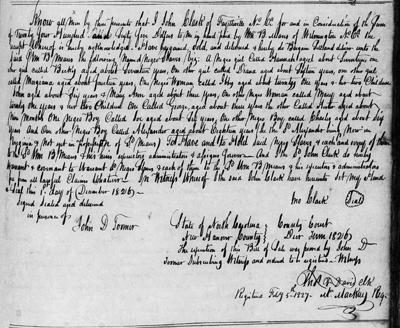 Know all men by these presents that I John Clark of Fayetteville No. Ca. for and in Consideration of the Sum
of Twenty four Hundred and Sixty five Dollars to me in hand paid by Wm B Means of Wilmington No. Ca. the
receipt whereof is hereby acknowledged. Have bargained, sold, and delivered & hereby do Bargain Sell and deliver unto the
said Wm B Means the following Named Negro Slaves (viz) A Negro girl Called Hannah aged about Seventeen years
one girl called Becky aged about Seventeen years, One other girl called Diana aged about fifteen years, one other girl
called Margaret aged about fourteen years, One Negro Woman called aged about twenty One years & her two Children
John aged about Six years & Mary Ann aged about three years, One other Negro Woman called Mary aged about
twenty One years & her two Children One Called George aged about three years the other Called aged about
Nine Months One Negro Boy Called Joe aged about Six years, One other Negro Boy called Charly aged about Six
years And One other Negro Boy Called Alexander aged about Eighteen years (he the Sd. Alexander being Now in
& Not yet in possession of Sd. Means) To Have and to Hold said Negro Slaves & each and every of them
Sd. Wm B Means & his heirs executors administrators & assigns forever And I the Sd. John Clark do hereby
warrant & covenant to Warrant Sd. Negro Slaves & each of them to the Sd. Wm B Means & his executors & administrators
from all lawful Claims Whatever. In Witness Whereof I the said John Clark have hereunto Set my Hand
& Seal this 1st day of December 1826
Signed Sealed and delivered
in presence of
Jno Clark (Seal)
John D
State of North Carolina County Court
New Hanover County Decr Term 1826
The execution of this Bill of Sale was proved by John D
Subscribing Witness and ordered to be registered. Witness
Davis Clk
Registered Feby 5th 1827. Reg.